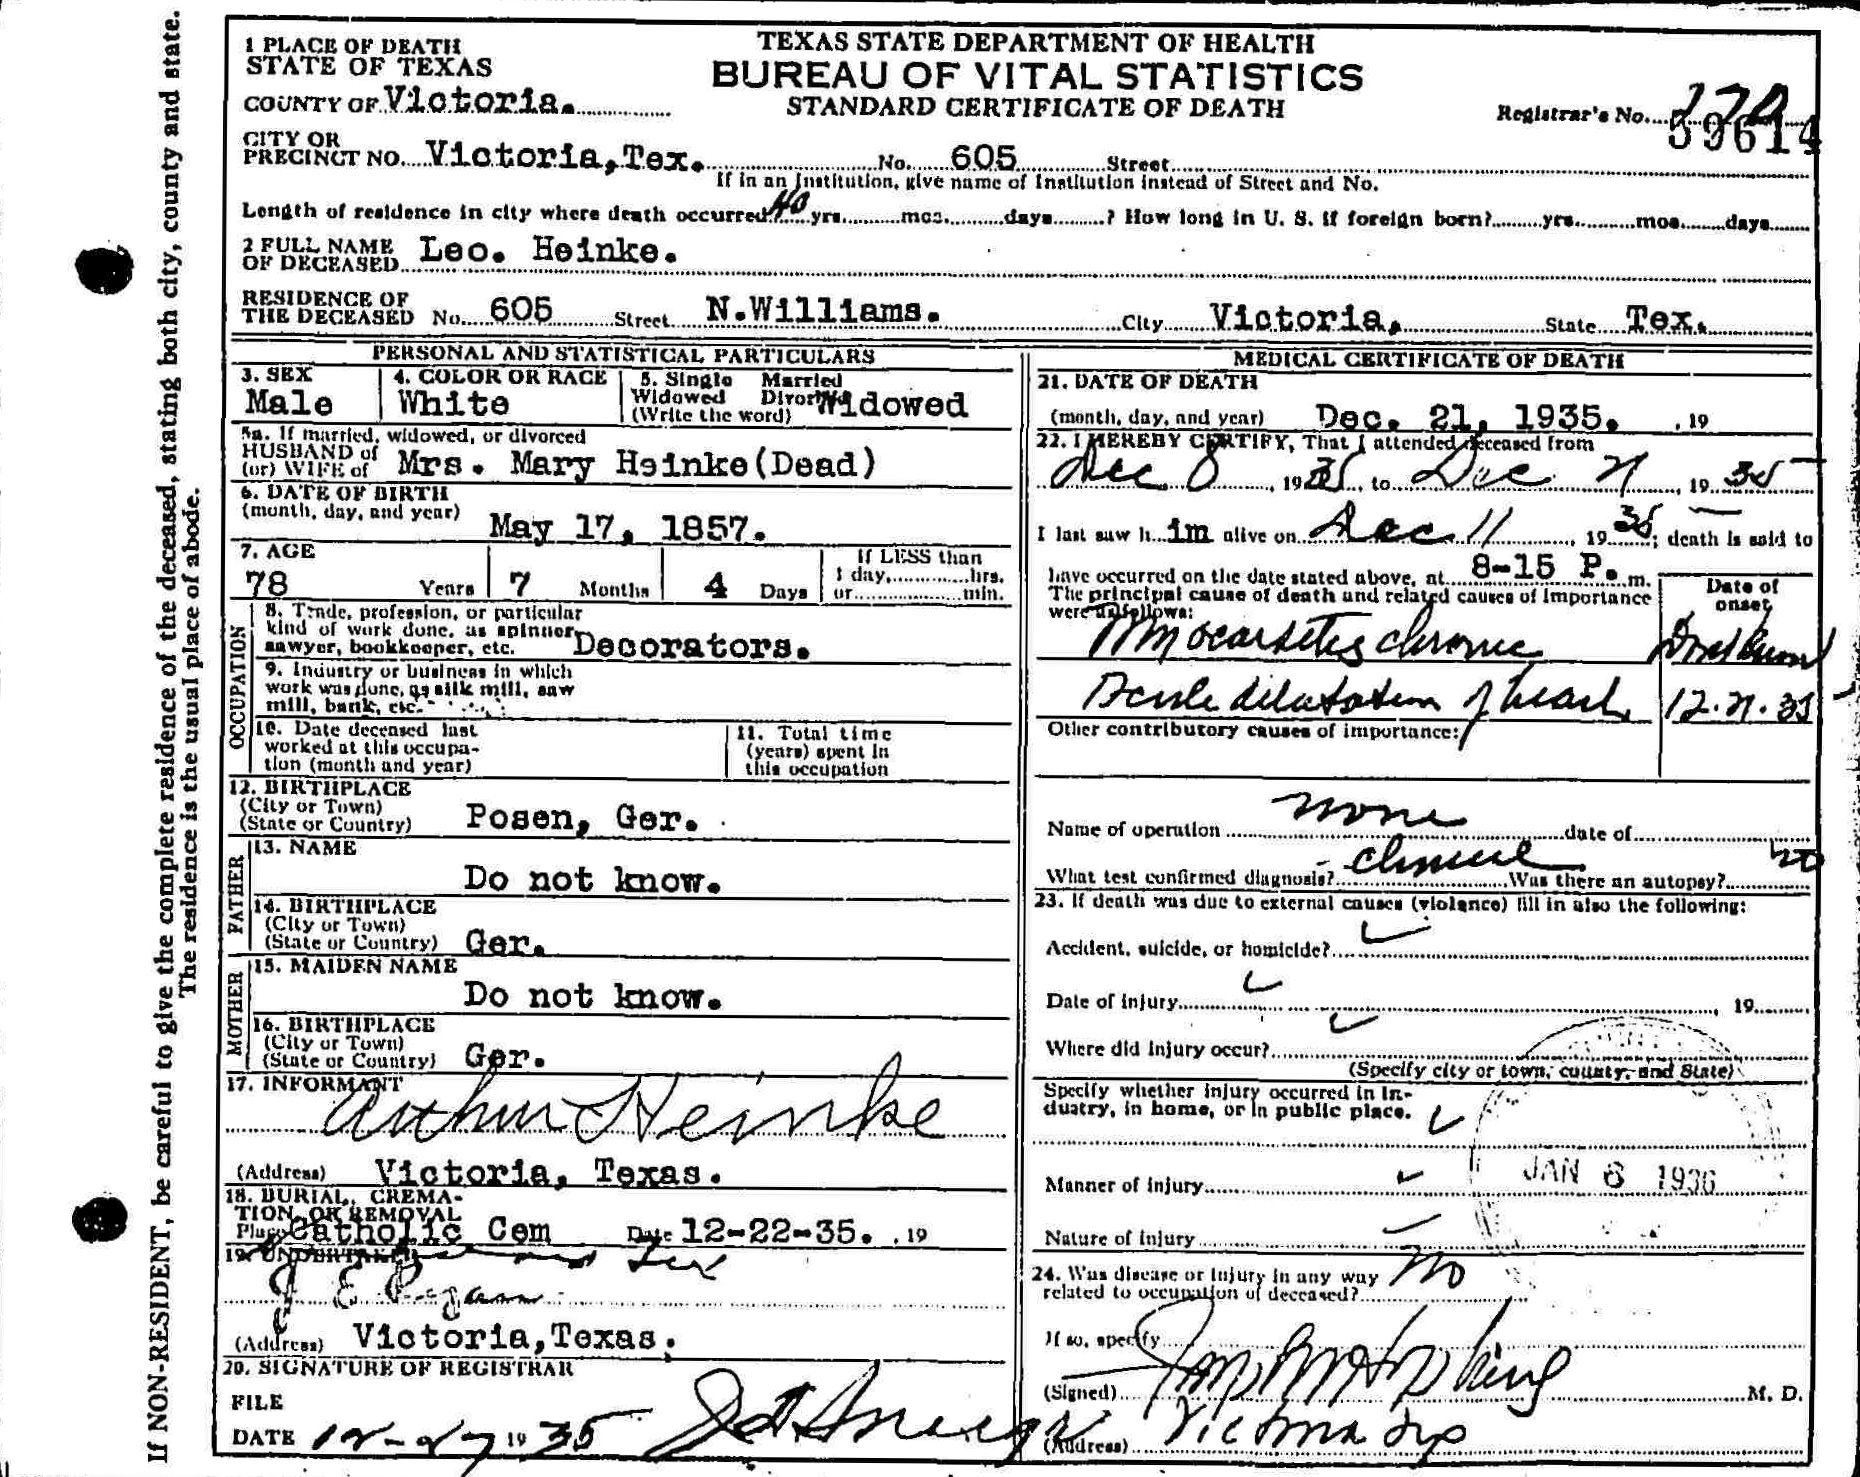 TEXAS STATE DEPARTMENT OF HEALTH
BUREAU OF VITAL STATISTICS
STANDARD CERTIFICATE OF DEATH
1 PLACE OF DEATH
STATE OF TEXAS
COUNTY OF Victoria.
Registrar's No.
59614
CITY OR
PRECINCT NO. Victoria, Tex. No. 605 Street
If in an Institution, give name of Institution instead of Street and No.
Length of residence in city where death occurred 40 yrs. mos. days ? How long in U. S. if foreign born? yrs. mos. days
2 FULL NAME
OF DECEASED Leo. Heinke.
RESIDENCE OF
THE DECEASED No. 605 Street N.Williams. City Victoria, State Tex.
PERSONAL AND STATISTICAL PARTICULARS
3. SEX
Male
4. COLOR OR RACE
White
5. Single Married
Widowed Divorced
(Write the word) Widowed
5a. If married, widowed, or divorced
HUSBAND of
(or) WIFE of Mrs. Mary Heinke(Dead)
6. DATE OF BIRTH
(month, day, and year) May 17, 1857.
7. AGE
78 Years 7 Months 4 Days
If LESS than
1 day, hrs.
or min.
OCCUPATION
8. Trade, profession, or particular
kind of work done, as spinner,
sawyer, bookkeeper, etc. Decorators.
9. Industry or business in which
work was done, as silk mill, saw
mill, bank, etc.
10. Date deceased last
worked at this occupa-
tion (month and year)
11. Total time
(years) spent in
this occupation
12. BIRTHPLACE
(City or Town)
(State or Country) Posen, Ger.
FATHER
13. NAME
Do not know.
14. BIRTHPLACE
(City or Town)
(State or Country) Ger.
MOTHER
15. MAIDEN NAME
Do not know.
16. BIRTHPLACE
(City or Town)
(State or Country) Ger.
17. INFORMANT
Arthur Heinke
(Address) Victoria, Texas.
18. BURIAL, CREMA-
TION, OR REMOVAL
Place Catholic Cem Date 12-22-35. , 19
19. UNDERTAKER
(Address) Victoria,Texas.
20. SIGNATURE OF REGISTRAR
FILE
DATE 12-27 19 35
MEDICAL CERTIFICATE OF DEATH
21. DATE OF DEATH
(month, day, and year) Dec. 21, 1935. , 19
22. I HEREBY CERTIFY, That I attended deceased from
Dec 8, 1935, to Dec 21, 19 35
I last saw h im alive on Dec 11, 19 35; death is said to
have occurred on the date stated above, at 8-15 P. m.
The principal cause of death and related causes of importance
were as follows:
Date of
onset
Myocarditis chronic Dont know
Acute dilatation of heart 12.21.35
Other contributory causes of importance:
Name of operation none date of
What test confirmed diagnosis? clinical Was there an autopsy? no
23. If death was due to external causes (violence) fill in also the following:
Accident, suicide, or homicide?
Date of injury , 19
Where did injury occur?
(Specify city or town, county, and State)
Specify whether injury occurred in in-
dustry, in home, or in public place.
Manner of injury
JAN 6 1936
Nature of injury
24. Was disease or injury in any way
related to occupation of deceased? No
If so, specify
(Signed) M. D.
(Address) Victoria
If NON-RESIDENT, be careful to give the complete residence of the deceased, stating both city, county and state.
The residence is the usual place of abode.